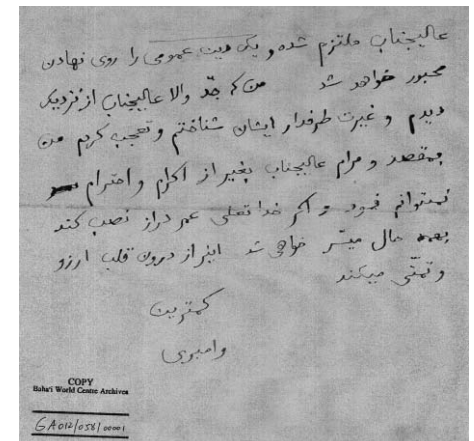 عالیجناب ملتزم شده و یک دین عمومی را روی نهادن
مجبور خواهد شد من که جدّ والا عالیجناب از نزدیک
دیدم و غیرت طرفدار ایشان شناختم و تعجب کردم من
بمقصد و مرام عالیجناب بغیر از اکرام و احترام
نمیتوانم نمود و اکر خدا تعالی عمر دراز نصب کند
بهمه حال میسّر خواهی شد اینرا از درون قلب ارزو
و تمنّی میکند
کمترین
وامبری
COPY
Baha'i World Centre Archives
GA 012/058/00001